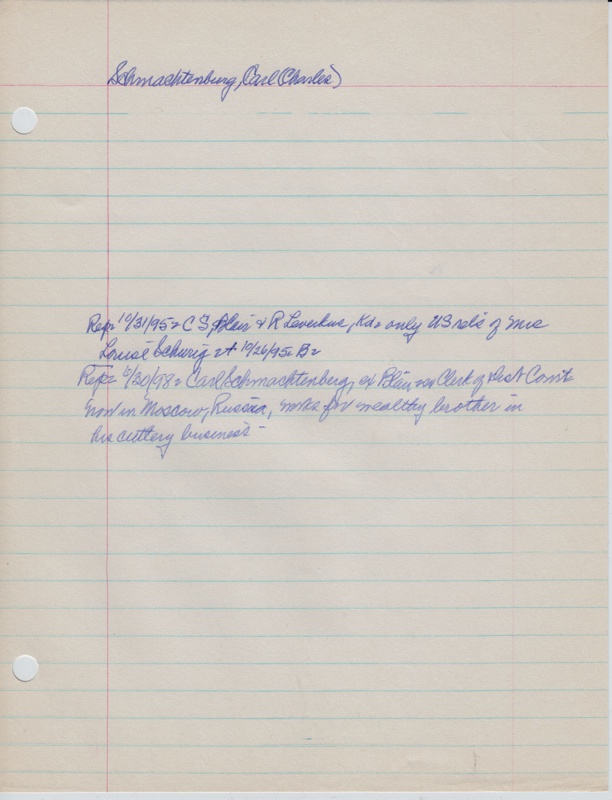 Schmachtenburg, Carl (Charles)
Rep= 10/31/95= C S, Blair & R Leverkus, Kd= only US rels of Mrs
Louise Schurig at 10/26/95= B=
Rep= 6/20/98= Carl Schmachtenberg, ex Blair, ex Clerk of Dist Court
now in Moscow, Russia, works for wealthy brother in
his cutlery business-